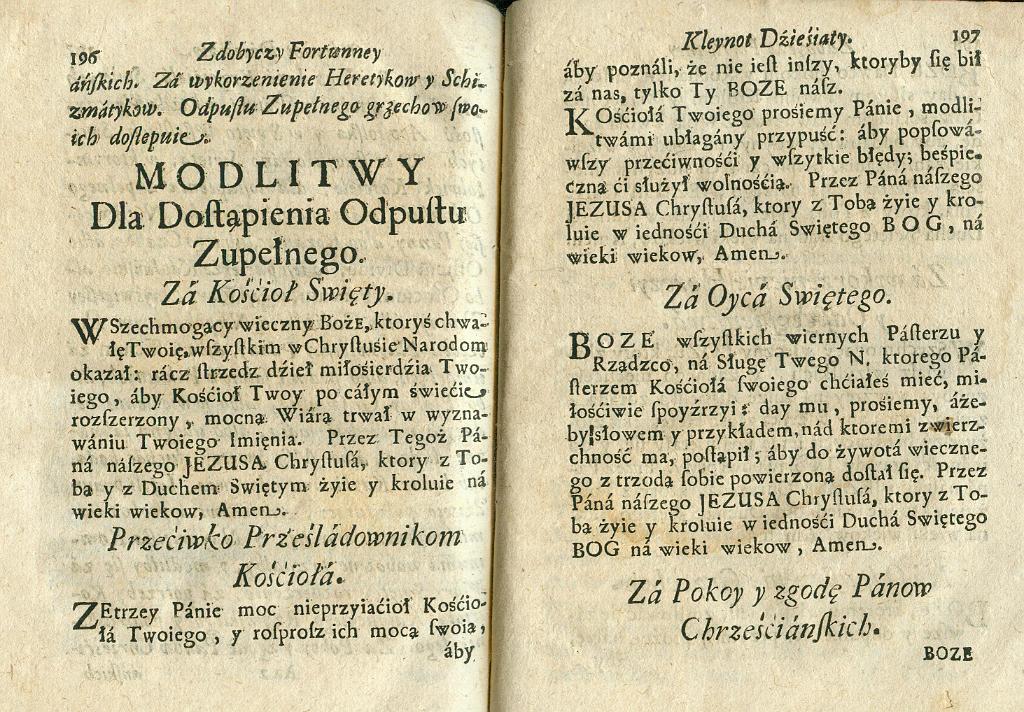 196 Zdobyczy Fortunney
áńſkich. Zá wykorzenienie Heretykow y Schi-
zmátykow. Odpuſtu Zupełnego grzechow ſwo-
ich doſtepuie.
MODLITWY
Dla Doſtąpienia Odpuſtu
Zupełnego.
Zá Kośćioł Swięty.
WSzechmogący wieczny BożE, ktoryś chwa-
łę Twoię wſzyſtkim w Chryſtusie Narodom
okazał: rácz ſtrzedz dźieł miłośierdźia Two-
iego, áby Kośćioł Twoy po cáłym świećie
rozſzerzony, mocną Wiárą trwał w wyzna-
wániu Twoiego Imięnia. Przez Tegoż Pá-
ná náſzego JEZUSA Chryſtuſá, ktory z To-
bą y z Duchem Swiętym żyie y kroluie ná
wieki wiekow, Amen.
Przećiwko Prześládownikom
Kośćiołá.
ZEtrzey Pánie moc nieprzyiaćioł Kośćio-
łá Twoiego, y roſproſz ich mocą ſwoią,
áby
Kleynot Dźieśiąty. 197
áby poználi, że nie ieſt inſzy, ktoryby ſię bił
zá nas, tylko Ty BOZE náſz.
KOśćiołá Twoiego prosiemy Pánie, modli-
twámi ubłagány przypuść: áby popſowá-
wſzy przećiwnośći y wſzytkie błędy; beśpie-
czną ći służył wolnośćią. Przez Páná náſzego
JEZUSA Chryſtuſá, ktory z Tobą żyie y kro-
luie w iednośći Duchá Swiętego BOG, ná
wieki wiekow, Amen.
Zá Oycá Swiętego.
BOZE wſzyſtkich wiernych Páſterzu y
Rządzco, ná Sługę Twego N. ktorego Pá-
ſterzem Kośćiołá ſwoiego chćiałeś mieć, mi-
łośćiwie ſpoyźrzyi: day mu, prośiemy, áże-
by słowem y przykładem, nád ktoremi zwierz-
chność ma, poſtąpił; áby do żywotá wieczne-
go z trzodą ſobie powierzoną doſtał ſię. Przez
Páná náſzego JEZUSA Chryſtuſá, ktory z To-
bą żyie y kroluie w iednośći Duchá Swiętego
BOG ná wieki wiekow, Amen.
Zá Pokoy y zgodę Pánow
Chrześćiáńſkich.
BOZE